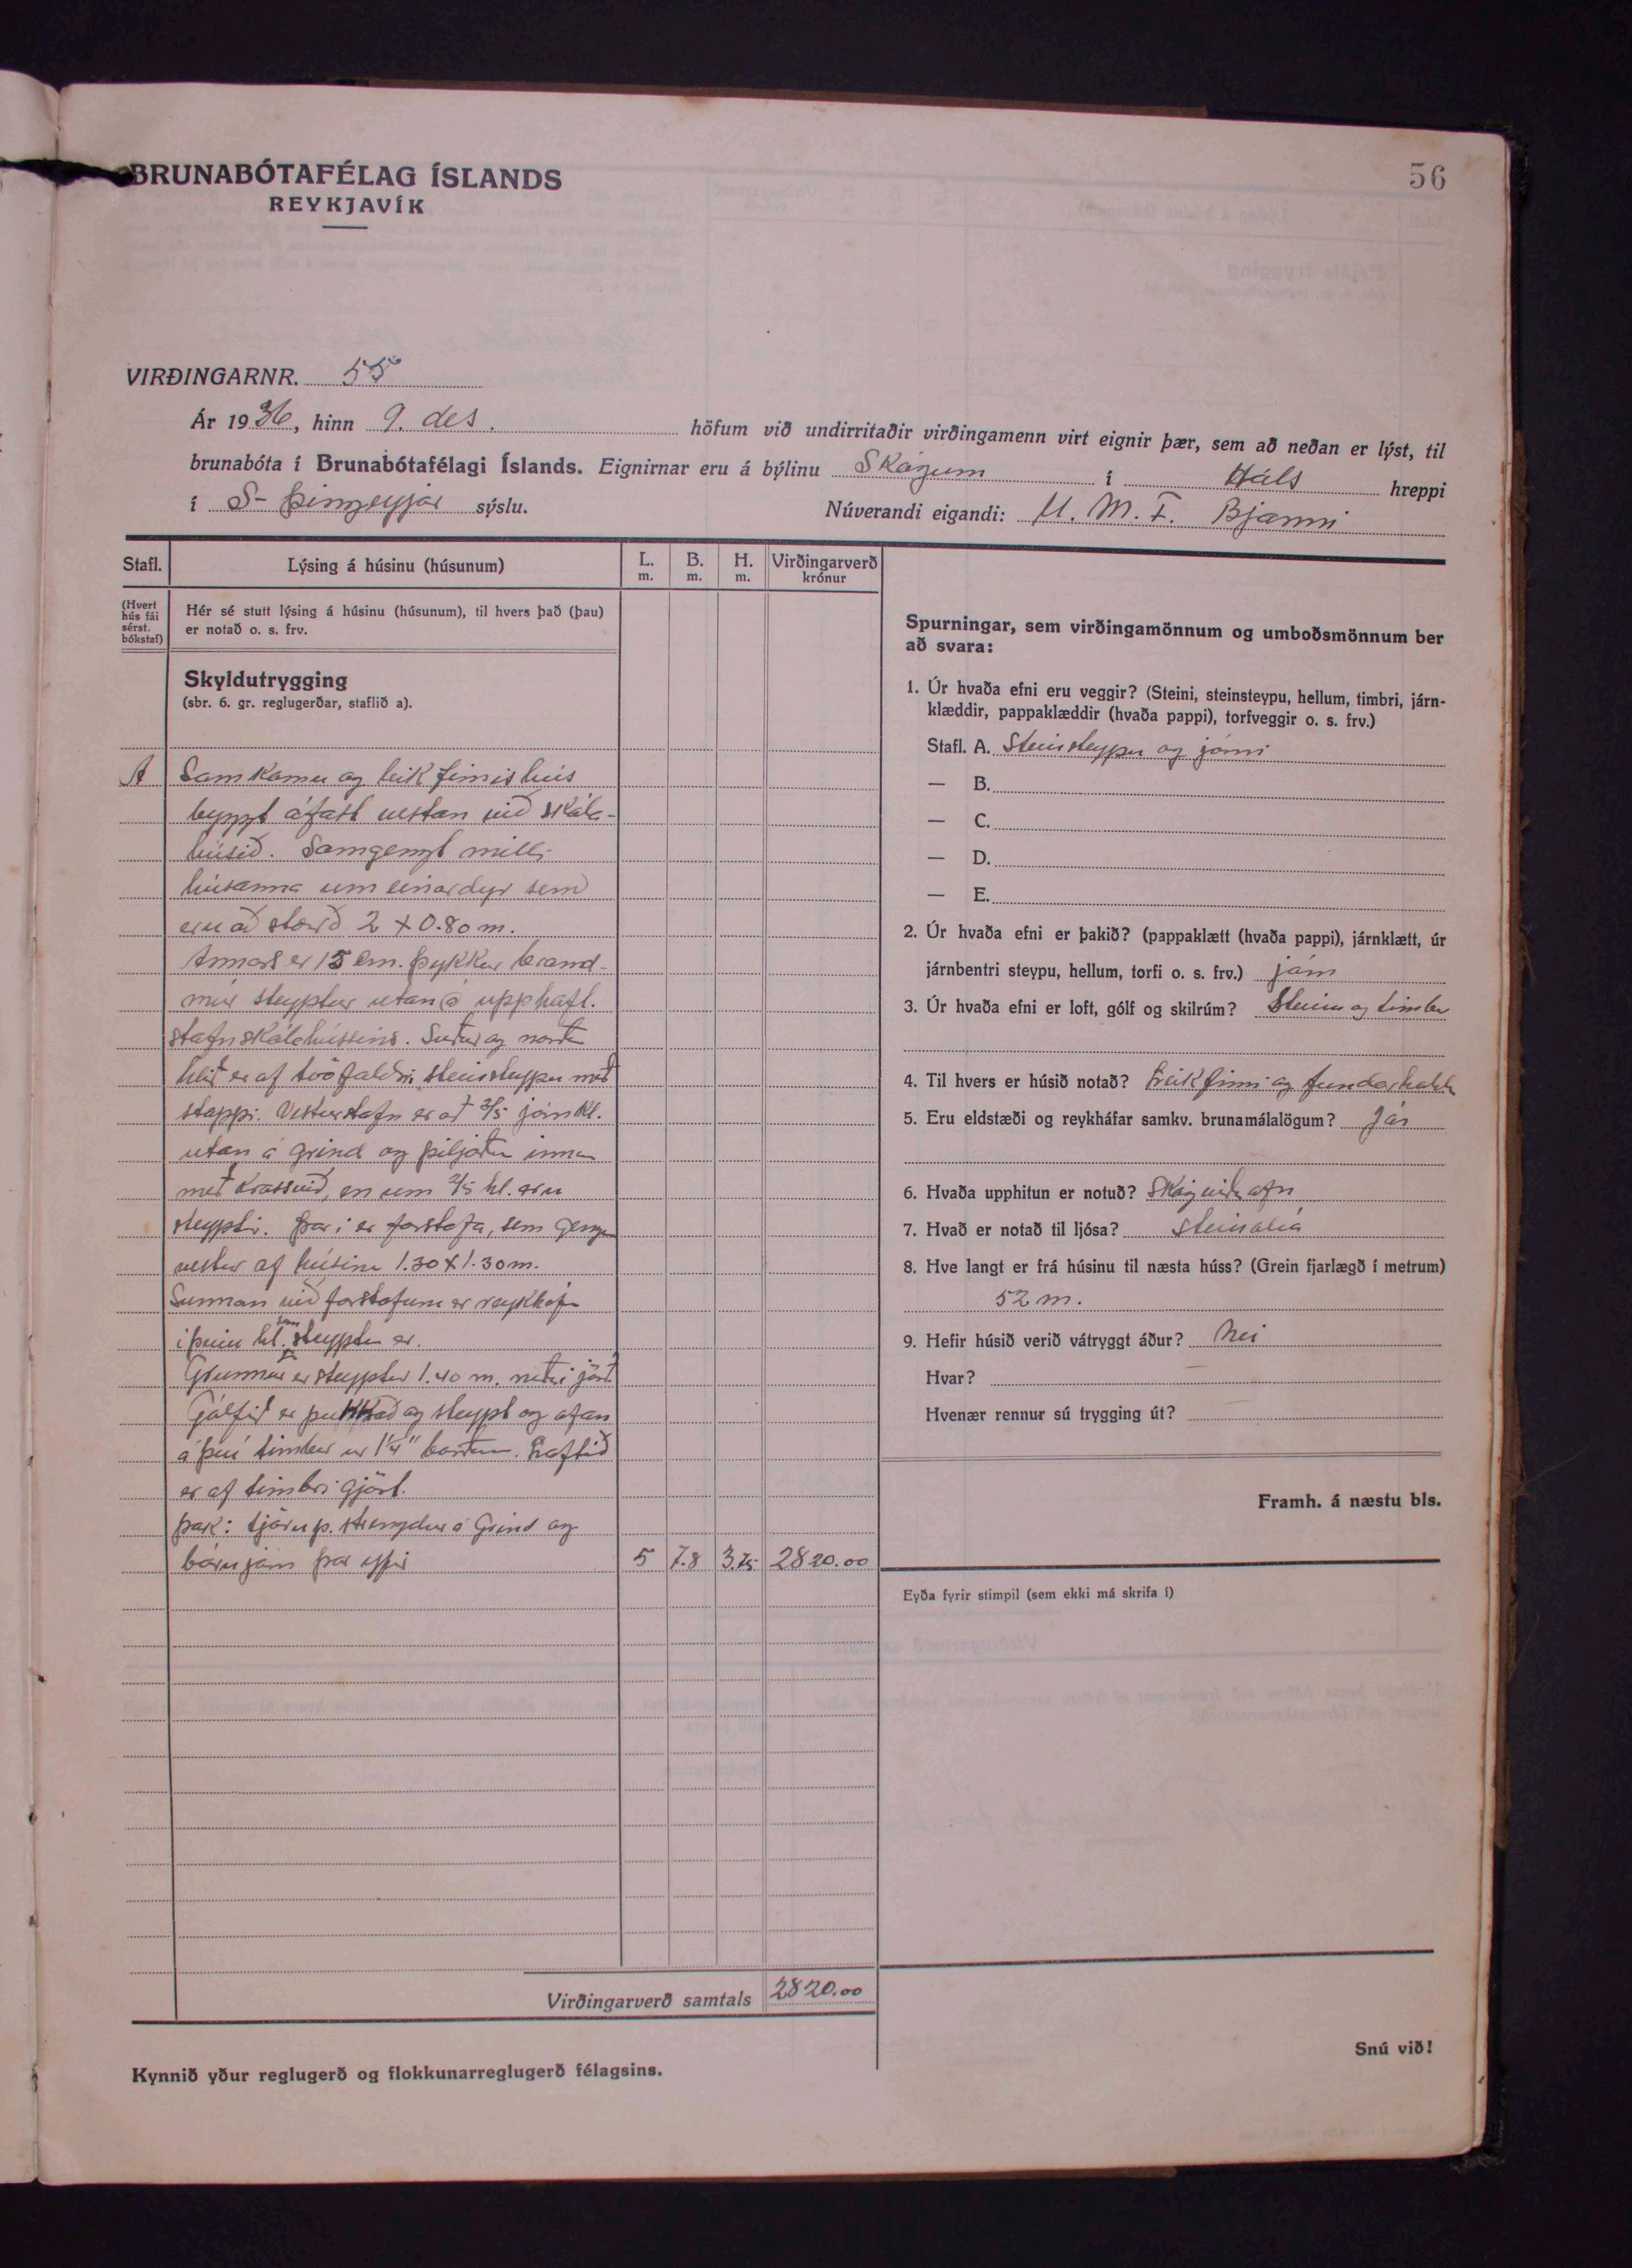 56
BRUNABÓTAFÉLAG ÍSLANDS
REYKJAVÍK
VIRÐINGARNR. 55
Ár 1936, hinn 9. des. höfum við undirritaðir virðingamenn virt eignir þær, sem að neðan er lýst, til
brunabóta í Brunabótafélagi Íslands. Eignirnar eru á býlinu Skógum í Háls hreppi
í S-Þingeyjar sýslu. Núverandi eigandi: U. M. F. Bjarmi
Stafl. Lýsing á húsinu (húsunum) L. m. B. m. H. m. Virðingarverð krónur
(Hvert hús fái sérst. bókstaf)
Hér sé stutt lýsing á húsinu (húsunum), til hvers það (þau)
er notað o. s. frv.
Skyldutrygging
(sbr. 6. gr. reglugerðar, staflið a).
A Samkomu og leikfimishús
byggt áfast vestan við skóla-
húsið. Samgengt milli
húsanna um einar dyr sem
eru að stærð 2 x 0.80 m.
Annars er 15 cm. þykkur brand-
múr steyptur utan á upphafl.
stafn skólahússins. Suður og norður
hlið er af tvöfaldri steinsteypu með
stoppi. Vesturstafn er að 3/5 járnkl.
utan á grind og þiljaður innan
með krossvið, en um 2/5 hl. eru
steyptir. Þar í er forstofa, sem gengur
vestur af húsinu 1.30 x 1.30 m.
Sunnan við forstofuna er reykháfur
í þeim hl. sem steyptur er.
Grunnur er steyptur 1.40 m. niður í jörð
Gólfið er pukkað og steypt og ofan
á því timbur úr 1 1/4" borðum. Loftið
er af timbri gjört.
Þak: tjörup. strengdur á grind og
bárujárn þar yfir 5 7.8 3.25 2820.00
Virðingarverð samtals 2820.00
Kynnið yður reglugerð og flokkunarreglugerð félagsins.
Spurningar, sem virðingamönnum og umboðsmönnum ber
að svara:
1. Úr hvaða efni eru veggir? (Steini, steinsteypu, hellum, timbri, járn-
klæddir, pappaklæddir (hvaða pappi), torfveggir o. s. frv.)
Stafl. A. Steinsteypu og járni
— B.
— C.
— D.
— E.
2. Úr hvaða efni er þakið? (pappaklætt (hvaða pappi), járnklætt, úr
járnbentri steypu, hellum, torfi o. s. frv.) járn
3. Úr hvaða efni er loft, gólf og skilrúm? Steini og timbur
4. Til hvers er húsið notað? Leikfimi og fundarhalda
5. Eru eldstæði og reykháfar samkv. brunamálalögum? Já
6. Hvaða upphitun er notuð? Skógviðarofn
7. Hvað er notað til ljósa? Steinolía
8. Hve langt er frá húsinu til næsta húss? (Grein fjarlægð í metrum)
52 m.
9. Hefir húsið verið vátryggt áður? Nei
Hvar? —
Hvenær rennur sú trygging út? —
Framh. á næstu bls.
Eyða fyrir stimpil (sem ekki má skrifa í)
Snú við!